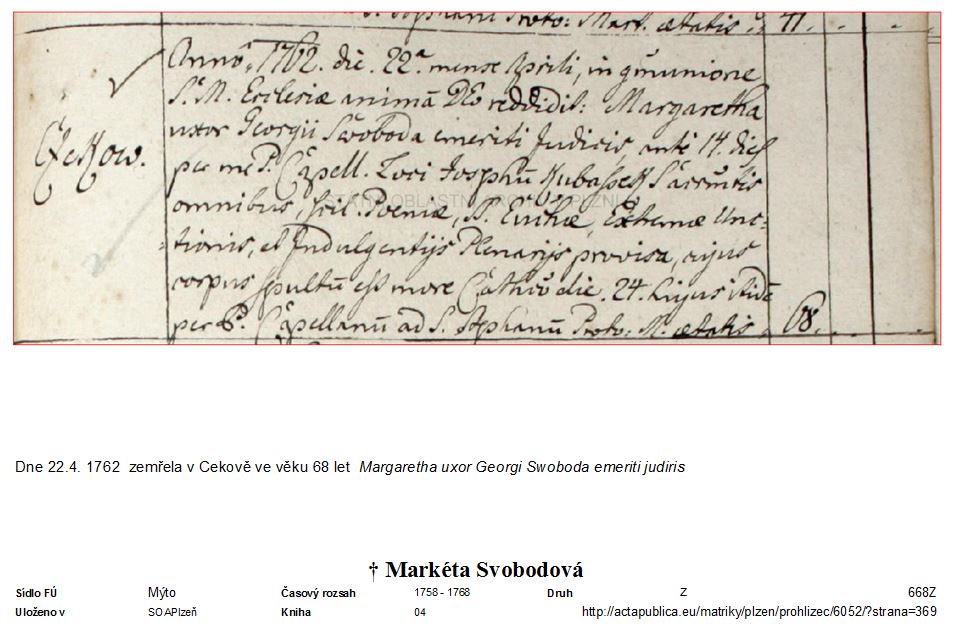 S. Stephanū Proto: Mart. ætatis 77.
Annô 1762. die. 22ª mense Aprili, in gmunione
S. M. Ecclesiæ animā DEo reddidit: Margaretha
Czekow. uxor Georgii Swoboda emeriti Judicis, ante 14. dies
per me P. Capell. Loci Josephū Kubassek Sacrmtis
omnibus, scil. Pœniæ, SS. Euchæ, Extremæ Unc-
tionis, et Indulgentijs Plenarijs provisa, cujus
corpus sepultū est more Cathco die. 24. hujus itidē
per P. Capellanū ad S. Stephanū Proto: M. ætatis 68.
STÁTNÍ OBLASTNÍ ARCHIV V PLZNI
Dne 22.4. 1762 zemřela v Cekově ve věku 68 let Margaretha uxor Georgi Swoboda emeriti judiris
† Markéta Svobodová
Sídlo FÚ Mýto Časový rozsah 1758 - 1768 Druh Z 668Z
Uloženo v SOAPlzeň Kniha 04 http://actapublica.eu/matriky/plzen/prohlizec/6052/?strana=369